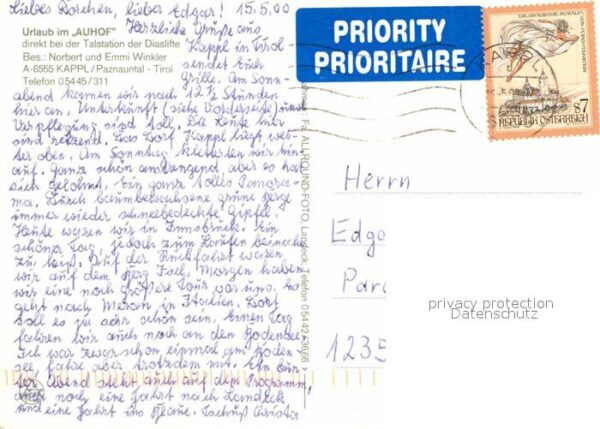 Liebes Dorchen, lieber Edgar! 15.5.00
Urlaub im „AUHOF"
direkt bei der Talstation der Diaslifte
Bes.: Norbert und Emmi Winkler
A-6555 KAPPL / Paznauntal - Tirol
Telefon 05445/311
Herzliche Grüße aus
Kappl in Tirol
sendet Euch
Grille. Am Sonn-
abend kamen wir nach 12 ½ Stunden
hier an. Unterkunft (siehe Vorderseite) und
Verpflegung sind toll. Die Leute hier
sind reizend. Das Dorf Kappl liegt wei-
ter oben. Am Sonntag kletterten wir hin-
auf. Ganz schön anstrengend aber es hat
sich gelohnt. Ein ganz tolles Panora-
ma. Durch baumbewachsene grüne Berge
immer wieder schneebedeckte Gipfel.
Heute waren wir in Innsbruck. Ein
schöner Tag, jedoch zum Laufen beinahe
zu heiß. Auf der Rückfahrt waren
wir auf dem Berg Isel. Morgen haben
wir eine noch größere Tour vor uns. Es
geht nach Meran in Italien. Dort
soll es ja sehr schön sein. Einen Tag
fahren wir auch noch an den Bodensee.
Ich war zwar schon einmal am Boden-
see, fahre aber trotzdem mit. Ein
Abend steht auch auf dem Programm
auch noch eine Fahrt nach Landeck
und eine Fahrt ins Blaue. Tschüß Christa
Fa. ALLROUND-FOTO, Landeck, Telefon 05442/3666
PRIORITY
PRIORITAIRE
VON FORCHTENSTEIN
S7
REPUBLIK ÖSTERREICH
KAPPL
Herrn
Edga
Par
1235
privacy protection
Datenschutz